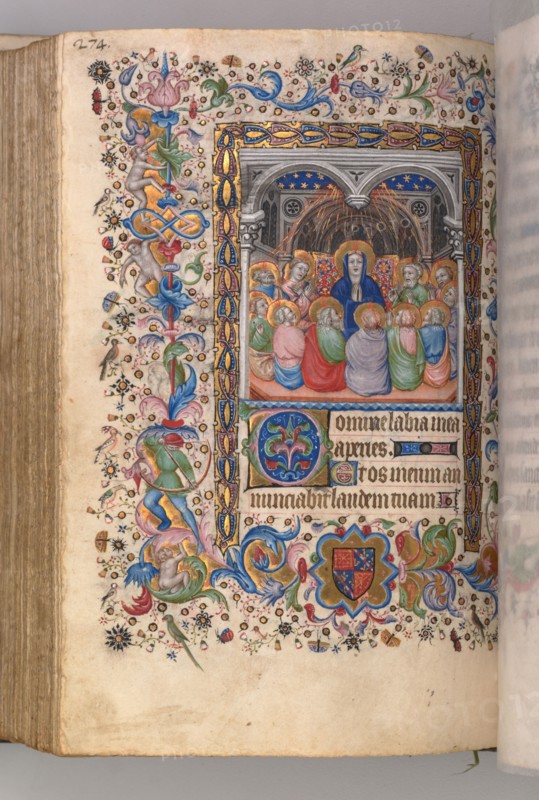 274.
Domine labia mea
aperies.
Et os meum an
nunciabit laudem tuam